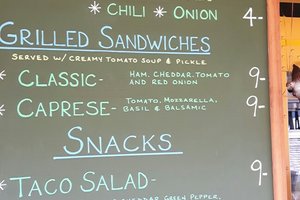 * CHILI * ONION 4-
GRILLED SANDWICHES
SERVED W/ CREAMY TOMATO SOUP & PICKLE
* CLASSIC- HAM, CHEDDAR, TOMATO AND RED ONION 9-
* CAPRESE- TOMATO, MOZZARELLA, BASIL & BALSAMIC 9-
SNACKS
* TACO SALAD- 9-
CHEDDAR, GREEN PEPPER,